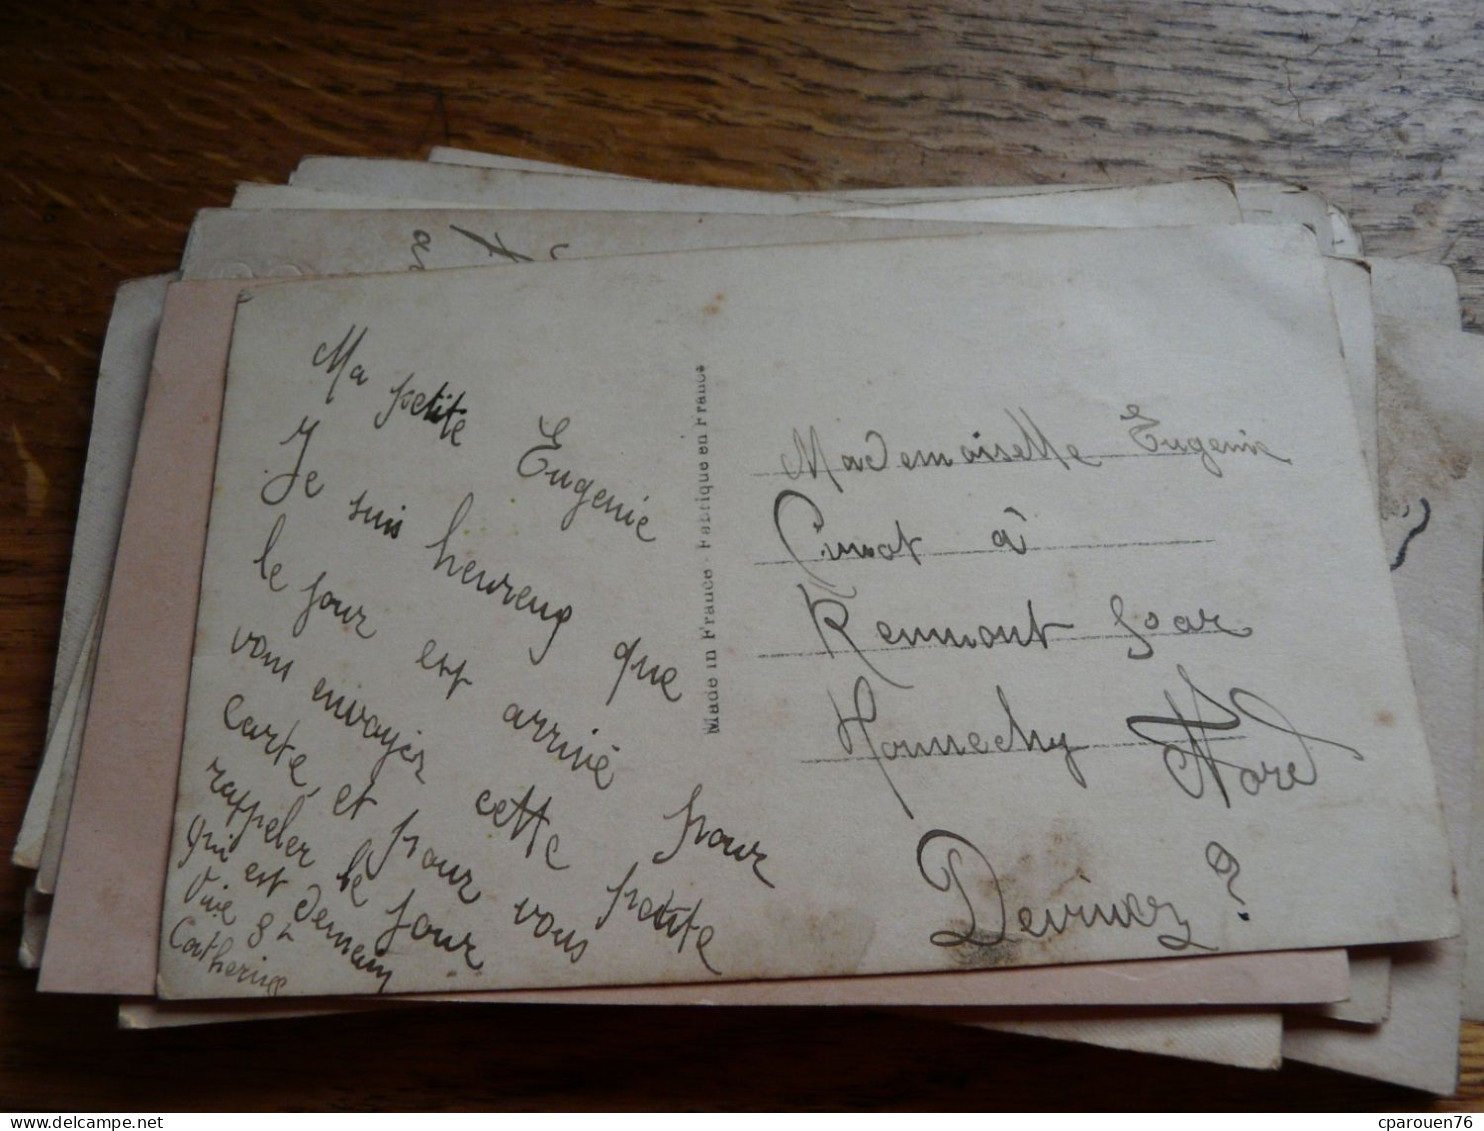 Ma petite Eugenie
Je suis heureux que
le jour est arrivé pour
vous envoyer cette petite
carte, et pour vous
rappeler le jour
qui est demain
Vive Ste
Catherine
Made in France - Fabrique en France
Mademoiselle Eugenie
à
Remmont par
Honnechy Nord
Devinez ?
cparouen76